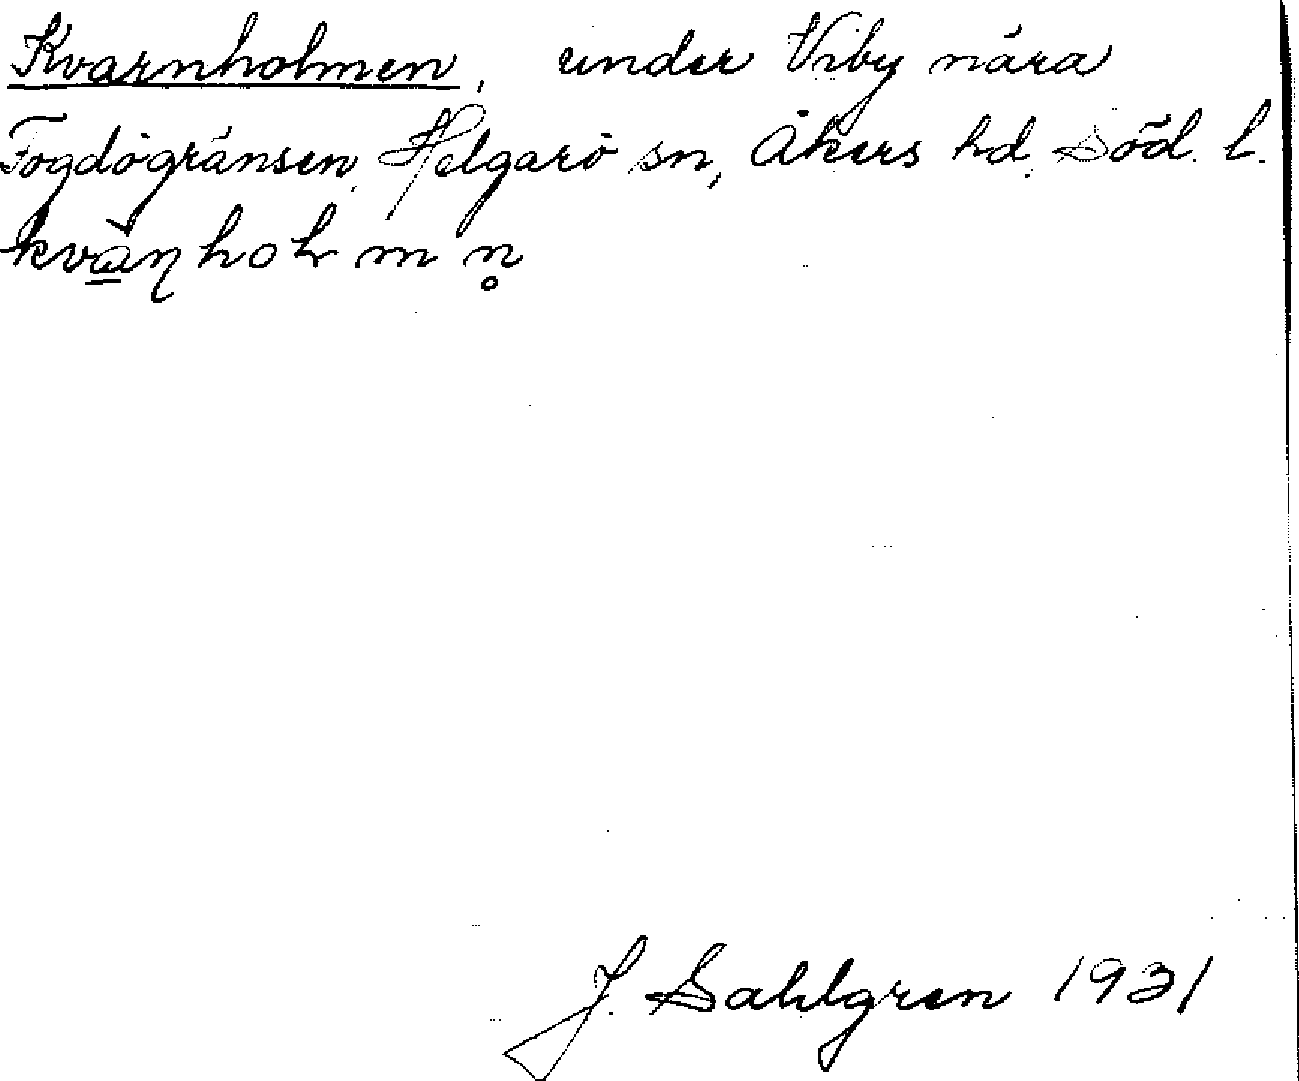 Kvarnholmen, under Viby nära
Fogdögränsen, Helgarö sn, Åkers hd. Söd. l.
J. Sahlgren 1931